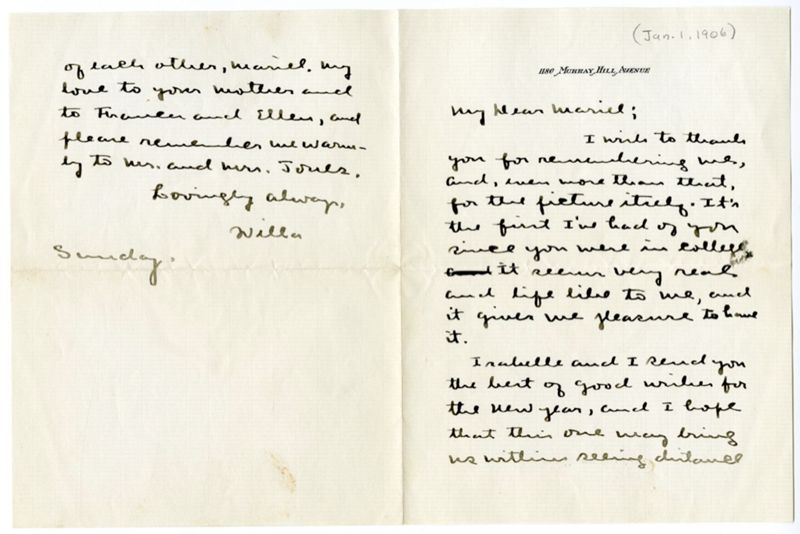 (Jan. 1. 1906)
1180 MURRAY HILL AVENUE
My Dear Mariel;
I wish to thank
you for remembering me,
and, even more than that,
for the picture itself. It's
the first I've had of you
since you were in college
it seems very real
and life like to me, and
it gives me pleasure to have
it.
Isabelle and I send you
the best of good wishes for
the New Year, and I hope
that this one may bring
us within seeing distance
of each other, Mariel. My
love to your Mother and
to Frances and Ellen, and
please remember me warm-
ly to Mr. and Mrs. Jones.
Lovingly always,
Willa
Sunday.